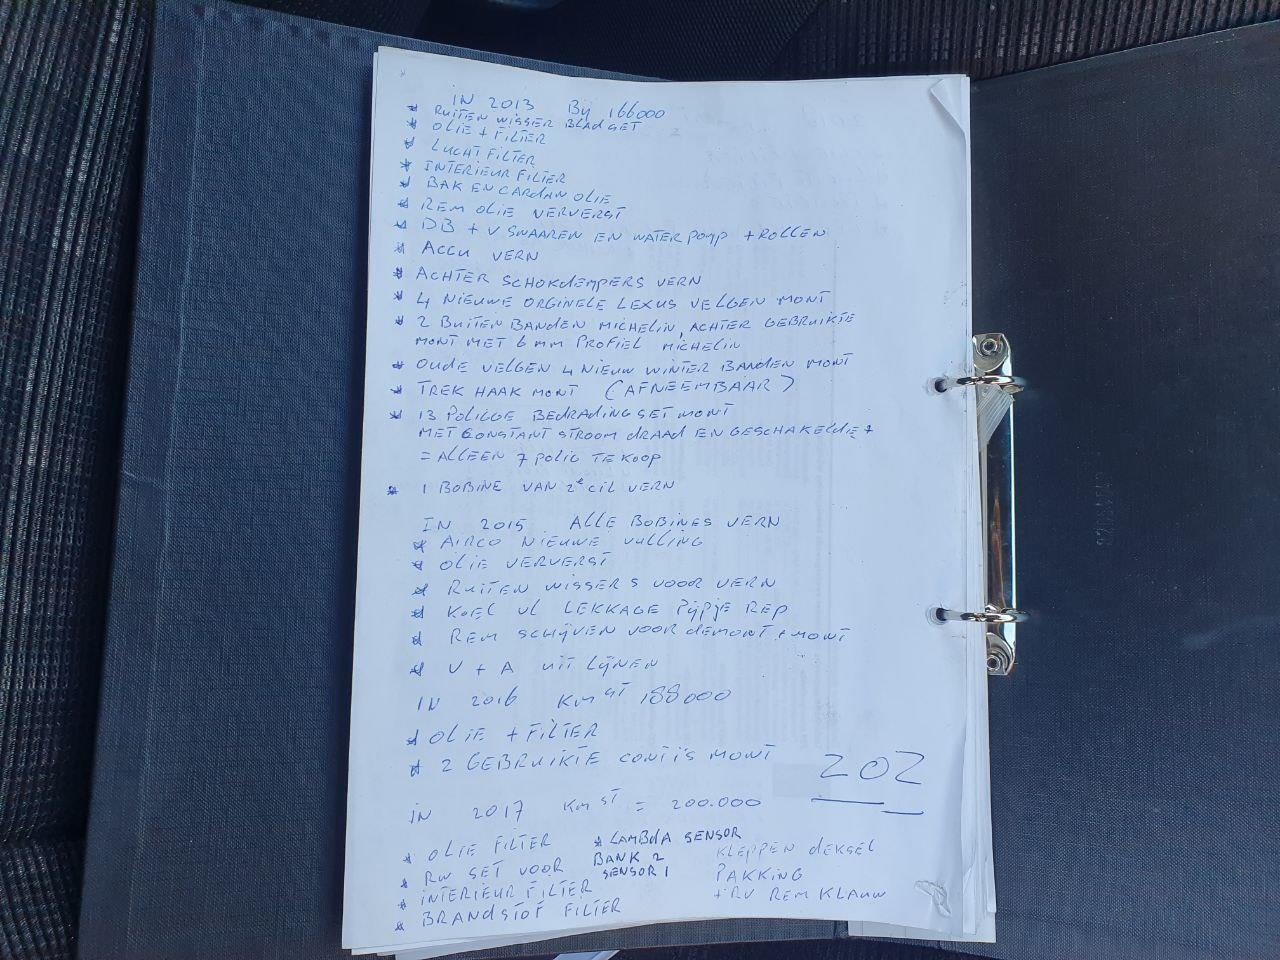 IN 2013 Bij 166000
* RUITEN WISSER BLAD SET
* OLIE + FILTER
* LUCHT FILTER
* INTERIEUR FILTER
* BAK EN CARDAN OLIE
* REM OLIE VERVERST
* DB + V SNAAREN EN WATER POMP + ROLLEN
* ACCU VERN
* ACHTER SCHOKDEMPERS VERN
* 4 NIEUWE ORGINELE LEXUS VELGEN MONT
* 2 BUITEN BANDEN MICHELIN, ACHTER GEBRUIKTE
MONT MET 6 MM PROFIEL MICHELIN
* OUDE VELGEN 4 NIEUW WINTER BANDEN MONT
* TREK HAAK MONT (AFNEEMBAAR)
* 13 POLIGE BEDRADING SET MONT
MET CONSTANT STROOM DRAAD EN GESCHAKELDE +
= ALLEEN 7 POLIG TE KOOP
* 1 BOBINE VAN 2e CIL VERN
IN 2015 ALLE BOBINES VERN
* AIRCO NIEUWE VULLING
* OLIE VERVERST
* RUITEN WISSERS VOOR VERN
* KOEL VL LEKKAGE PijPjE REP
* REM SCHijVEN VOOR DEMONT + MONT
* V + A UIT LijNEN
IN 2016 KM ST 188000
* OLIE + FILTER
* 2 GEBRUIKTE CONTI'S MONT
ZOZ
IN 2017 KM ST = 200.000
* OLIE FILTER
* RW SET VOOR
* INTERIEUR FILTER
* BRANDSTOF FILTER
* LAMBDA SENSOR
BANK 2
SENSOR 1
KLEPPEN DEKSEL
PAKKING
+ RV REM KLAUW